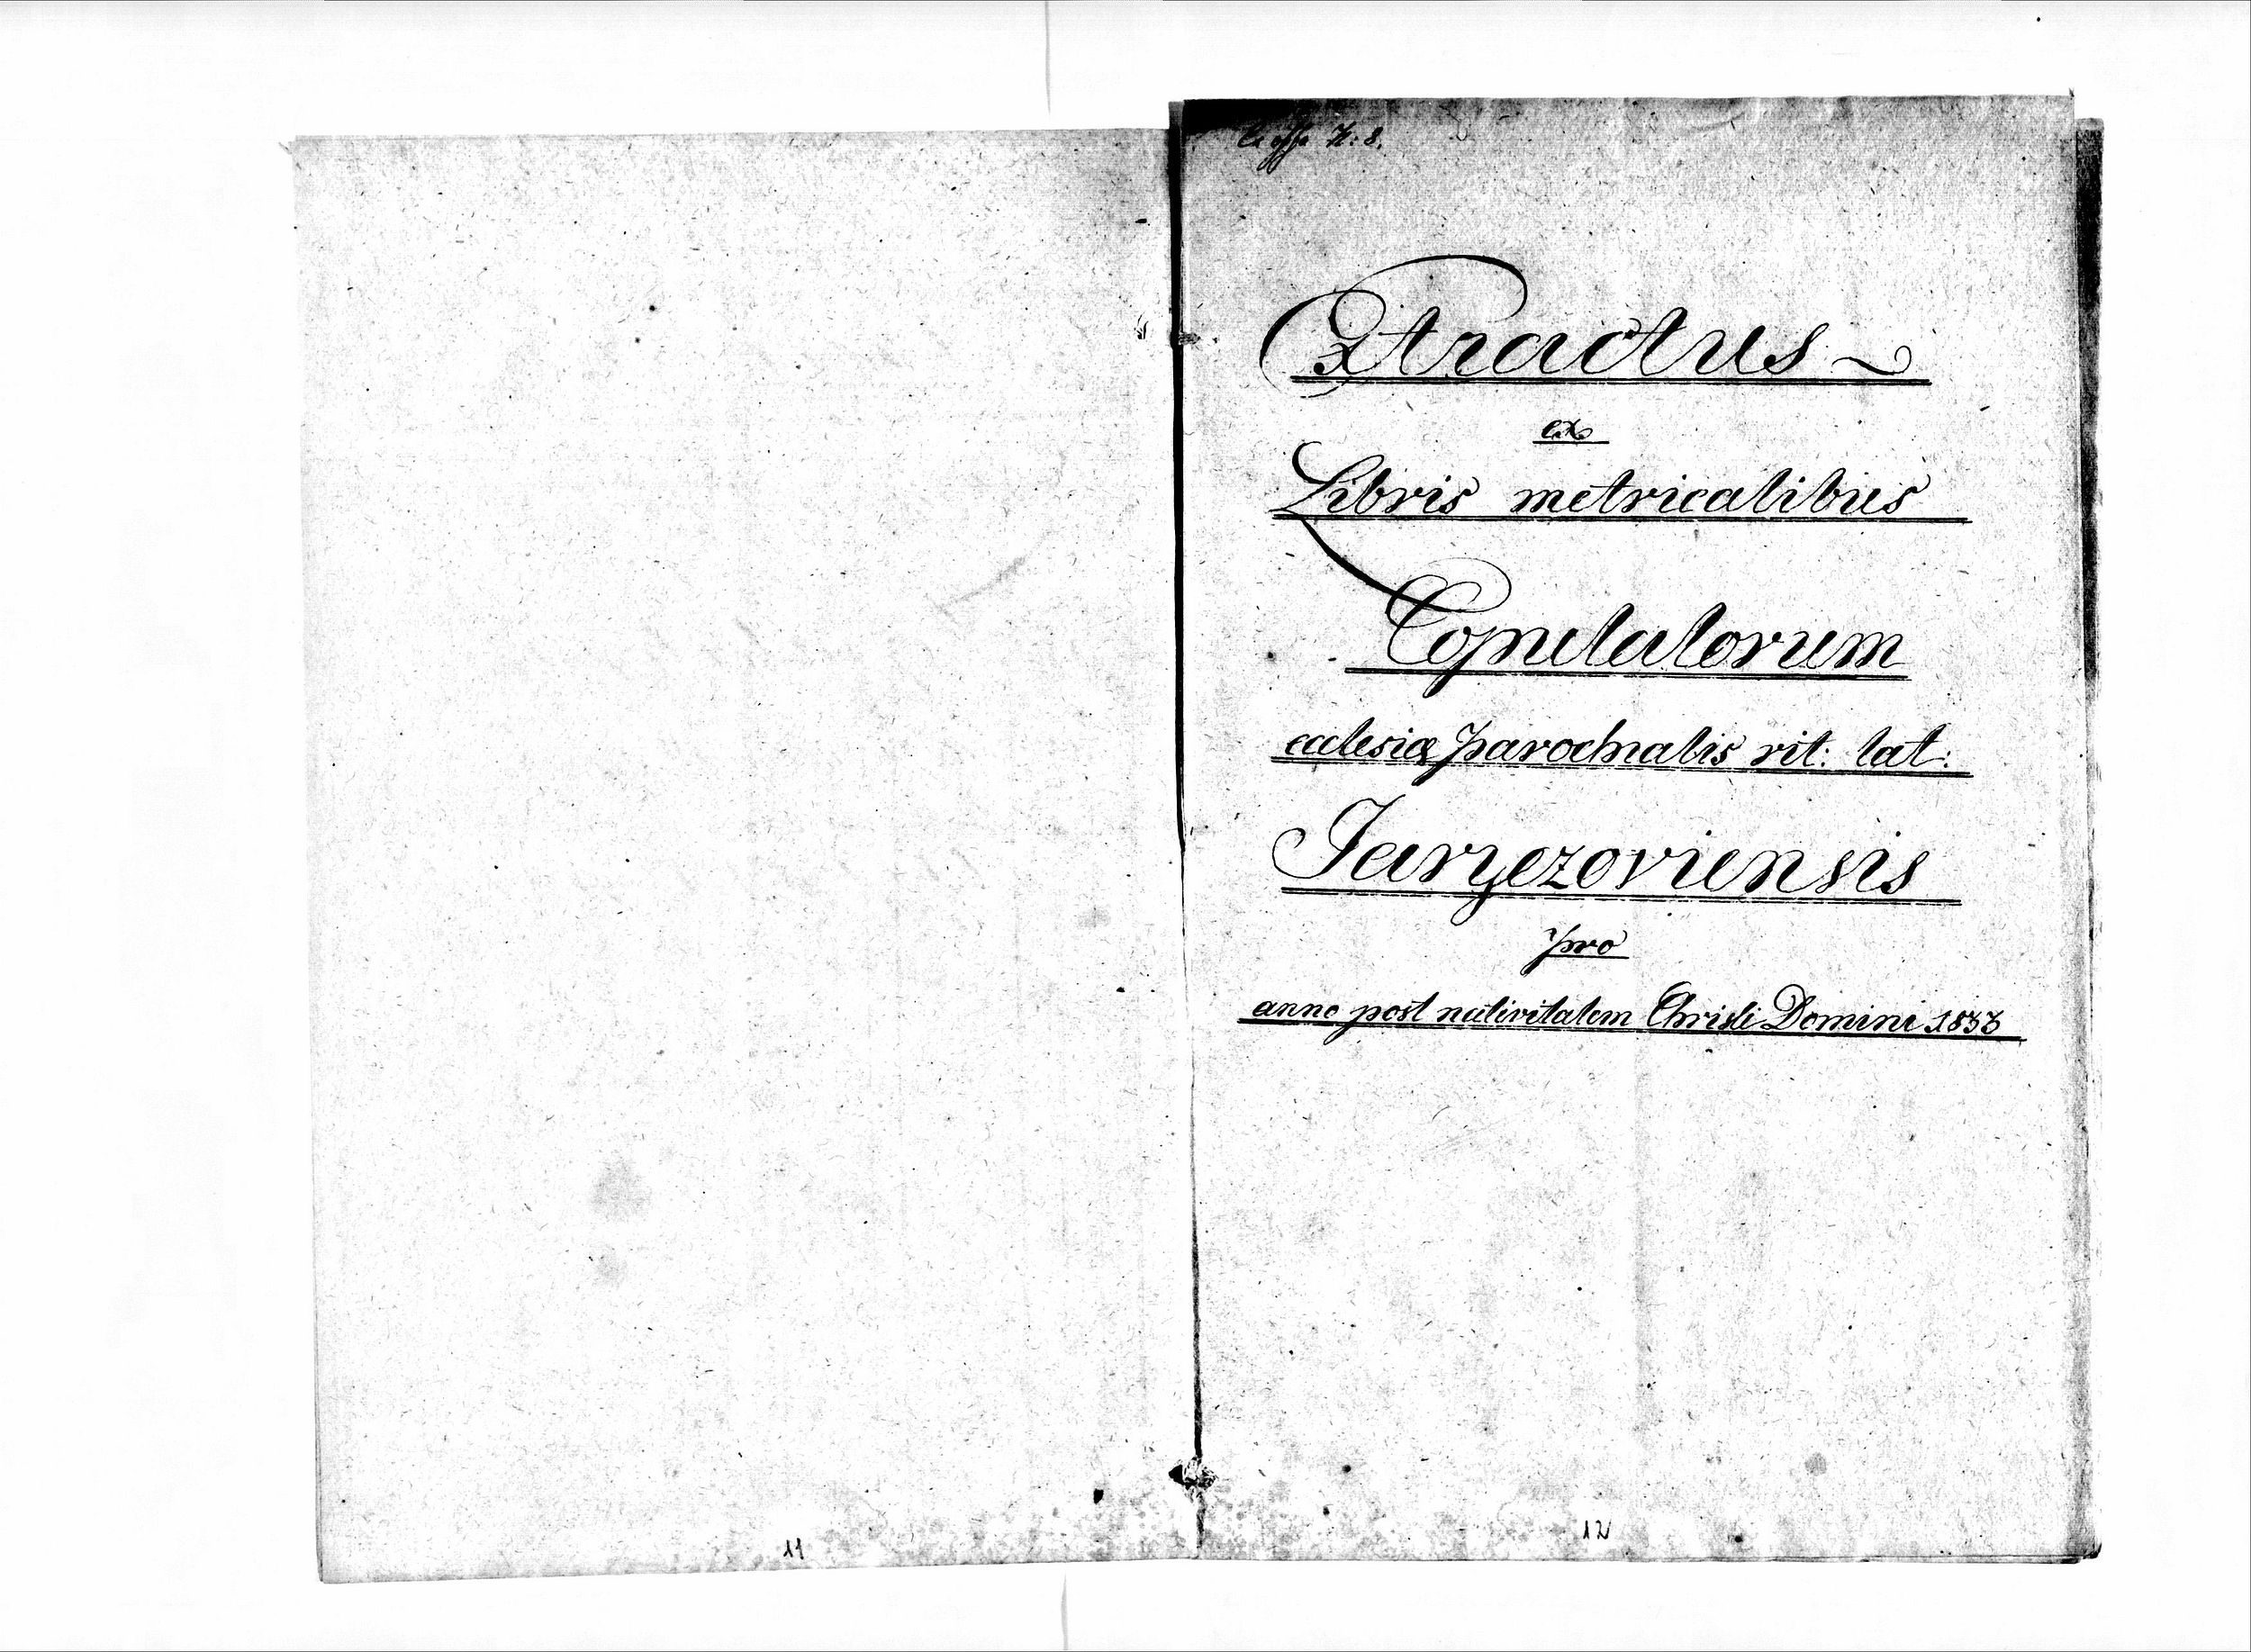 11
Ex offo N: 8.
Extractus
ex
Libris metricalibus
Copulatorum
ecclesiæ parochialis rit: lat:
Jaryczoviensis
pro
anno post nativitatem Christi Domini 1833
12